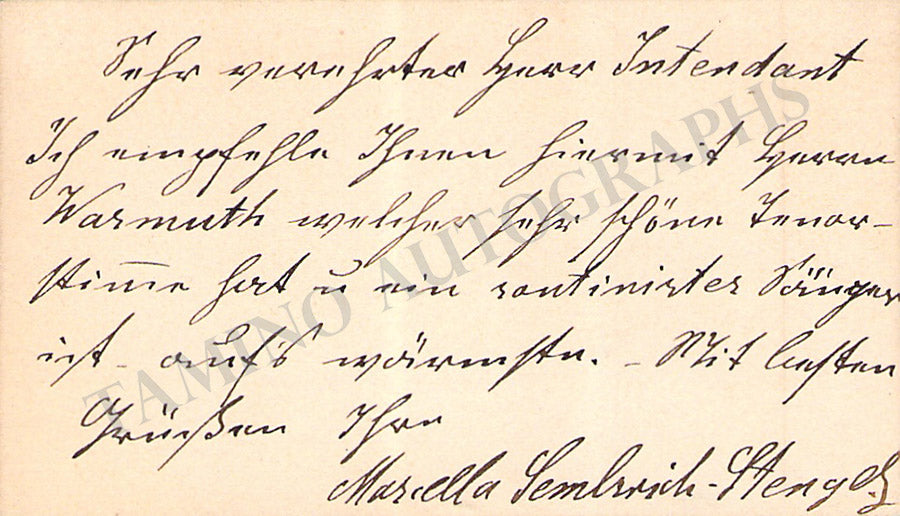 Sehr verehrter Herr Intendant
Ich empfehle Ihnen hiermit Herrn
Warmuth welcher sehr schöne Tenor-
stim̅e hat u ein routinirter Sänger
ist – auf's wärmste. – Mit besten
Grüßen Ihre
Marcella Sembrich-Stengel
TAMINO AUTOGRAPHS